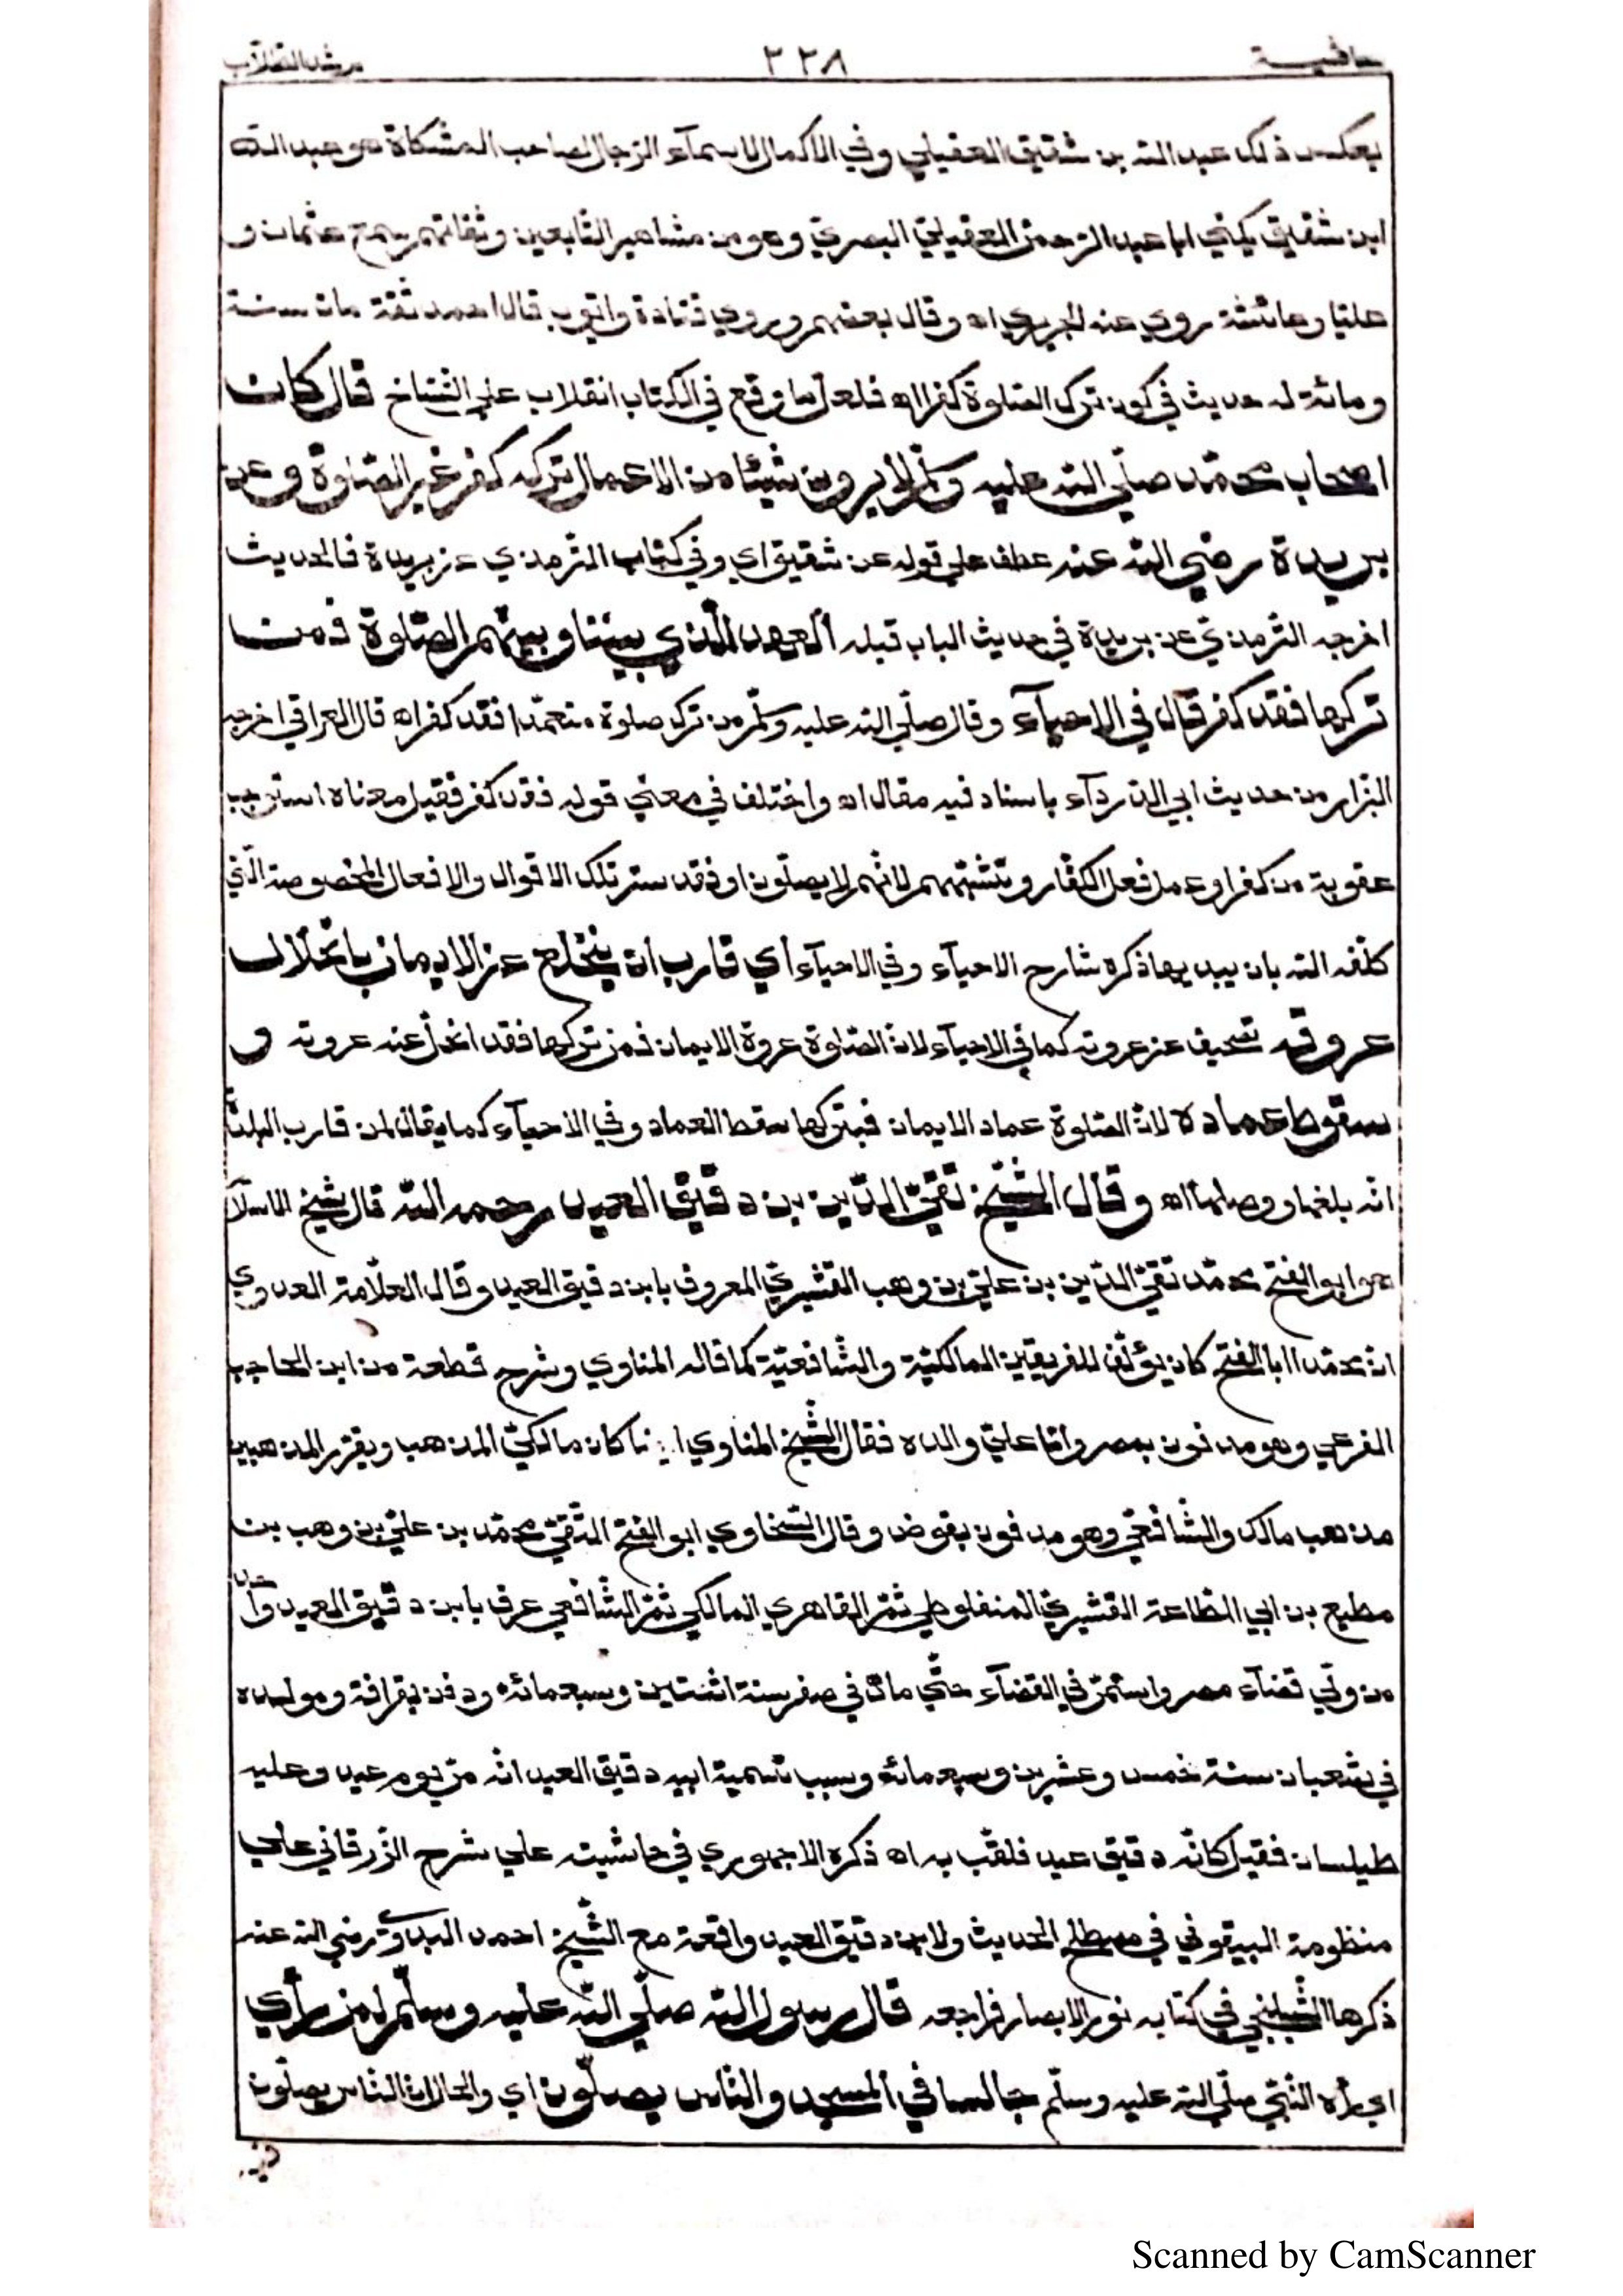 حاشية ٢٢٨ مرشد الطلاب
بعكس ذلك عبد الله بن شقيق العقيلي وفي الاكمال لاسمآء الرجال لصاحب المشكاة هو عبد الله
ابن شقيق يكني ابا عبد الرحمن العقيليّ البصريّ وهو من مشاهير التّابعين وثقاتهم سمع عثمان و
عليّا وعائشة روي عنه الجريري اه وقال بعضهم وروي قتادة وايّوب قال احمد ثقة مات سنة
ومائة له حديث في كون ترك الصّلوة كفرا اه فلعل ما وقع في الكتاب انقلاب علي النّسّاخ قال كان
اصحاب محمّد صلّي الله عليه وسلّم لا يرون شيئا من الاعمال تركه كفر غير الصّلوة وعن
بريدة رضي الله عنه عطف علي قوله عن شقيق اي وفي كتاب الترمذي عن بريدة فالحديث
اخرجه الترمذيّ عن بريدة في حديث الباب قبله العهد الّذي بيننا وبينهم الصّلوة فمن
تركها فقد كفر قال في الاحيآء وقال صلّي الله عليه وسلّم من ترك صلوة متعمّدا فقد كفر اه قال العراقي اخرجه
البزار من حديث ابي الدّردآء باسناد فيه مقال اه واختلف في معني قوله فقد كفر فقيل معناه استوجب
عقوبة من كفر او عمل فعل الكفّار وتشبّههم لانّهم لا يصلّون او فقد ستر تلك الاقوال والافعال المخصوصة الّتي
كلّفه الله بان يبديها ذكره شارح الاحيآء وفي الاحيآء أي قارب ان ينخلع عن الايمان بانحلال
عروقه تصحيف عن عروته كما في الاحيآء لانّ الصّلوة عروة الايمان فمن تركها فقد انحلّ عنه عروته و
سقوط عماده لانّ الصّلوة عماد الايمان فبتركها سقط العماد وفي الاحيآء كما يقال لمن قارب البلدة
انّه بلغها ووصلها اه وقال الشّيخ تقيّ الدّين بن دقيق العيد رحمه الله قال شيخ الاسلام
هو ابو الفتح محمّد تقيّ الدّين بن عليّ بن وهب القشيريّ المعروف بابن دقيق العيد وقال العلّامة العدوي
انّ محمّدا ابا الفتح كان يؤلّف للفريقين المالكيّة والشّافعيّة كما قاله المناوي وشرح قطعة من ابن الحاجب
الفرعي وهو مدفون بمصر وامّا عليّ والده فقال الشّيخ المناوي كان مالكيّ المذهب ويقرّر المذهبين
مذهب مالك والشّافعيّ وهو مدفون بقوص وقال السّخاوي ابو الفتح التّقيّ محمّد بن عليّ بن وهب بن
مطيع بن ابي الطّاعة القشيريّ المنفلوطي ثمّ القاهري المالكي ثمّ الشّافعي عرف بابن دقيق العيد واحد
من ولّي قضآء مصر واستمرّ في القضآء حتّي مات في صفر سنة اثنتين وسبعمائة ودفن بقرافة ومولده
في شعبان سنة خمس وعشرين وسبعمائة وسبب تسمية ابيه دقيق العيد انّه مرّ يوم عيد وعليه
طيلسان فقيل كانّه دقيق عيد فلقّب به اه ذكره الاجهوري في حاشيته علي شرح الزّرقاني علي
منظومة البيقوني في مصطلح الحديث ولابن دقيق العيد واقعة مع الشّيخ احمد البدويّ رضي الله عنه
ذكرها الشّبلنجي في كتابه نور الابصار فراجعه قال رسول الله صلّي الله عليه وسلّم لمن رأي
اي رآه النّبيّ صلّي الله عليه وسلّم جالسا في المسجد والنّاس يصلّون اي والحال انّ النّاس يصلّون
Scanned by CamScanner